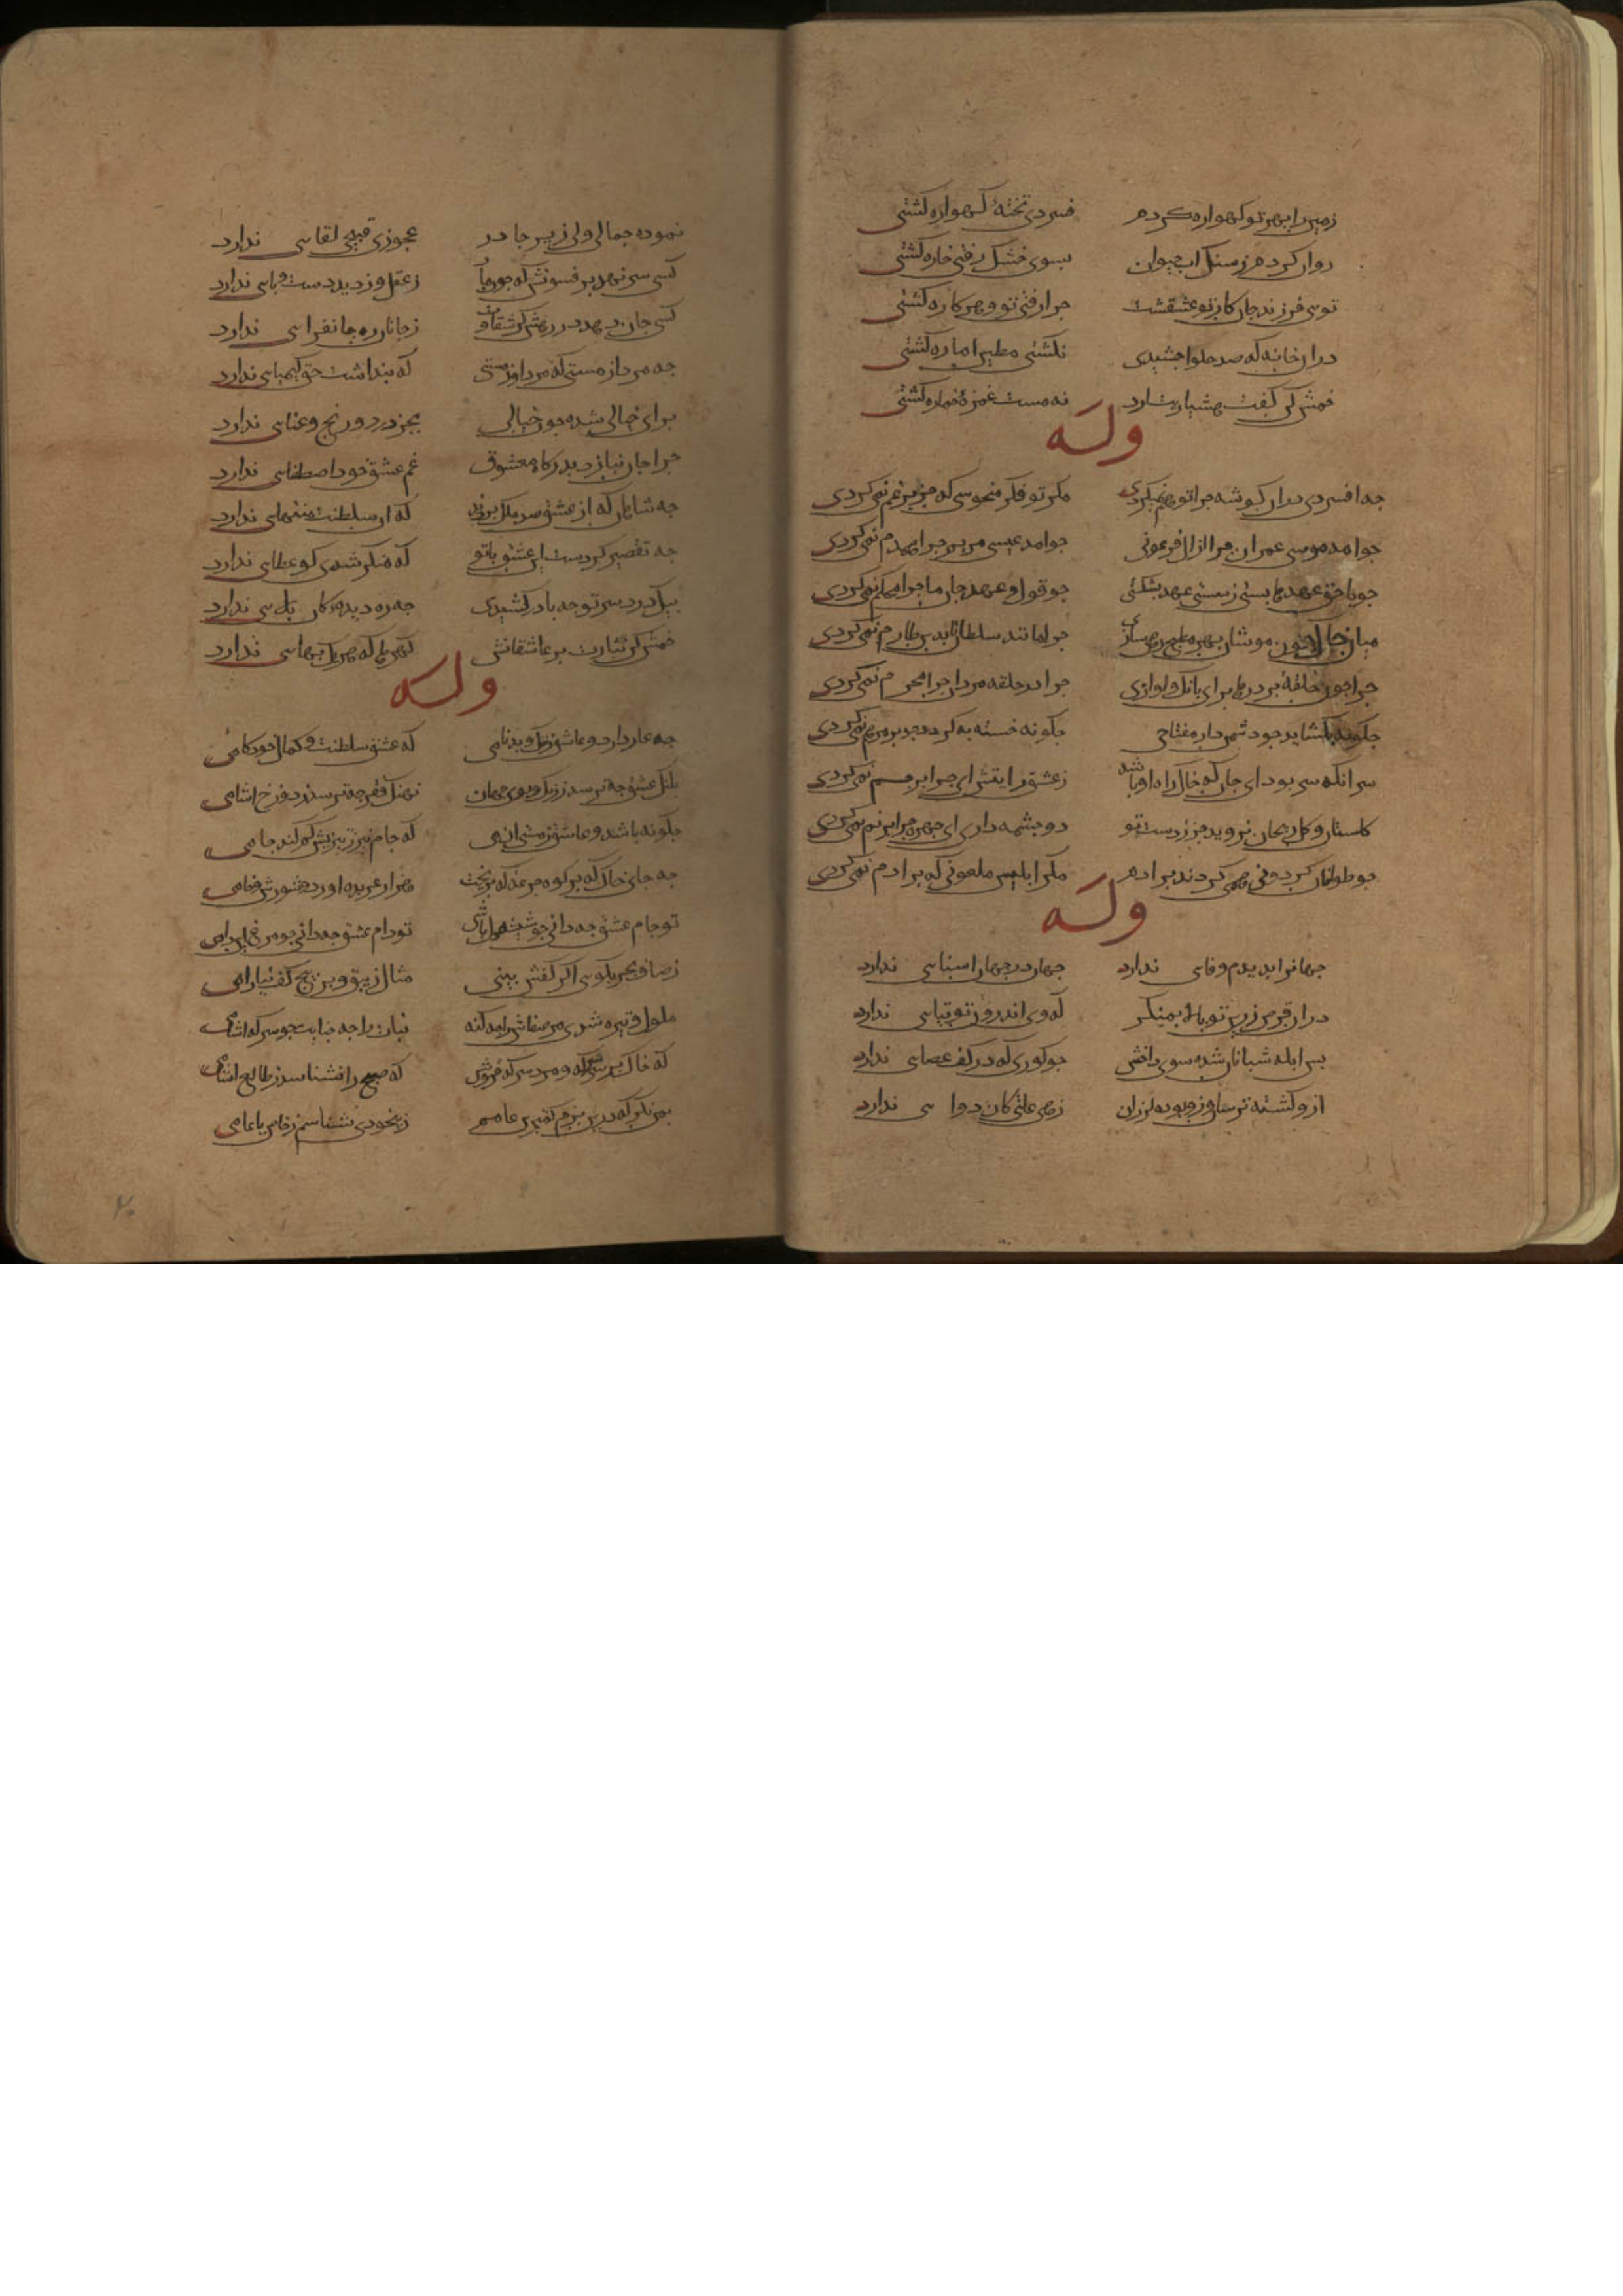 زمین را بهر تو کهواره کردم فسردی تخته کهواره کشتی
روان کردم ز سنک اب حیوان بسوی خشک رفتی خاره کشتی
توی فرزند جان کار تو عشقست چرا رفتی تو و هر کاره کشتی
دران خانه که صد حلوا چشیدی نکشتی مطمئن اماره کشتی
خمش کن کفت هشیاریت ارد نه مست غمزه خماره کشتی
وله
جه افسردی دران کوشه جرا تو هم نمیکردی مکر تو فکر منحوسی که جز بر غم نمی کردی
جو امد موسی عمران جرا از ال فرعونی جو امد عیسی مریم جرا همدم نمی کردی
جو با حق عهدها بستی ز سستی عهد بشکستی جو قول و عهد جان ما جرا محکم نمی کردی
میان خاک جون موشان بهر مطبخی سازی جرا مانند سلطانان برین طارم نمی کردی
جرا جون حلقه بر درها برای بانک و اوازی جرا در حلقه مردان جرا محرم نمی کردی
جکونه بکشاید جو دشمن دار مفتاحی جکونه خسته به کردد جو بر مرهم نمی کردی
سر انکه سر بود ای جان که خاک راه او باشد ز عشق رایتش ای جرا برجم نمی کردی
کلستان و کل و ریحان نروید جز ز دست تو دو جشمه داری ای جهره جرا بر نم نمی کردی
جو طوافان کردونی همی کردند بر ادم مکر ابلیس ملعونی که بر ادم نمی کردی
وله
جهانرا بدیدم وفای ندارد جهان در جهان اسنای ندارد
دران قرص زرین تو بالا بمنکر که وی اندرون تو بتیای ندارد
بس ابله شبانان شده سوی دامش جو کوری که در کف عصای ندارد
ازو کشته ترسان وزو بوده لرزان زهی علتی کان دوا ی ندارد
نموده جمالی ولی زیر جادر عجوزی قبیحی لقای ندارد
کسی سر نهد بر فسونش که جون ما ز عقل و ز دین دست و بای ندارد
کسی جان دهد در رهش کز شقاوت ز جانان ره جانفزای ندارد
جه مرد از مستی که مرد از مستی که بنداشت حق کیمیای ندارد
برای خیالی شده جون خیالی بجز درد و رنج و عنای ندارد
جرا جان نیازد بدرکاه معشوق غم عشق خود اصطفای ندارد
جه شاهان که از عشق صد ملک بردند که ان سلطنت منتهای ندارد
جه تقصیر کردست این عشق باتو که منکر شدی کو عطای ندارد
بیک درد سر تو جه با درکشیدی جه ره دیده کان بلای ندارد
خمش کن نثارست بر عاشقانش کهرها که هر یک بهای ندارد
وله
جه عار دارد و عاشق ز ننک و بدنامی که عشق سلطنت و کمال خودکامی
بلنک عشق جه ترسد ز رنک و بوی جهان نهنک فقر جه ترسد ز دوزخ اشامی
جکونه باشد و عاشق ز مستی ان می که جام نیز ز تیزیش کم کند جامی
جه جای خاک که بر کوه جرعه که بریخت هزار عربده اورد و شورش و خامی
تو جام عشق جه دانی جو شیشه دل باشی تو دام عشق جه دانی جو مرغ این دامی
ز صاف بحر نکوی اکر کفش بینی مثال زیبق و بر هیج کف نیارامی
ملول و تیره شدی مر صفاش را جه کنه نبات را جه جنایت جو سرکه اشامی
که خاک بر سر سرکه و مر سرکه فروش که صبح را نشناسد ز طالع اشامی
بمن نکر که درین بزم کمترین عامم ز بیخودی نشناسم ز خاص یا عامی